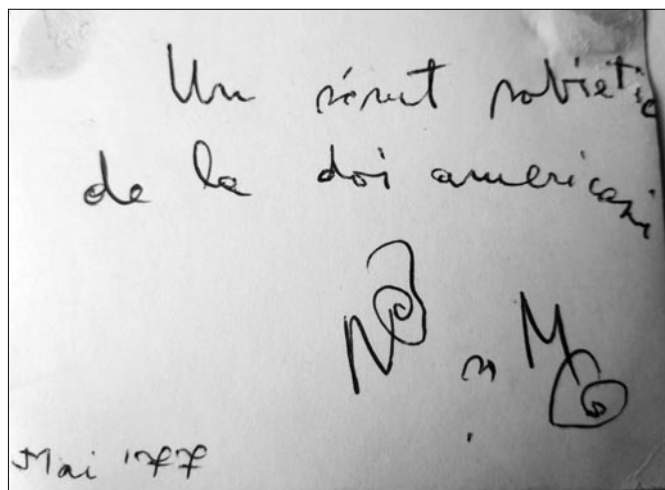 Un sărut sovietic
de la doi americani
N și M
Mai '77